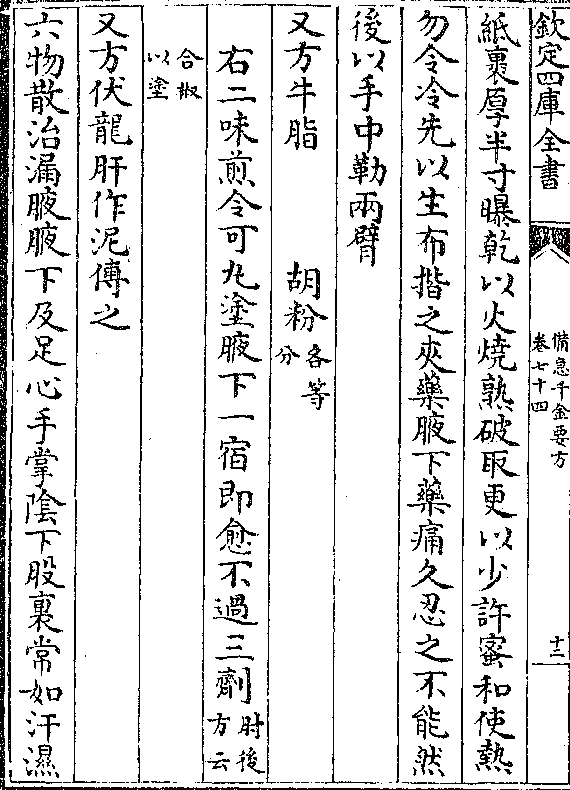 欽定四庫全書
備急千金要方
卷七十四
十二
紙裹厚半寸曝乾以火燒熟破取更以少許蜜和使熱
勿令冷先以生布揩之夾藥腋下藥痛久忍之不能然
後以手巾勒兩臂
又方牛脂　胡粉各等分
右二味煎令可丸塗腋下一宿即愈不過三劑肘後方云
合椒以塗
又方伏龍肝作泥傅之
六物散治漏腋腋下及足心手掌陰下股裏常如汗濕